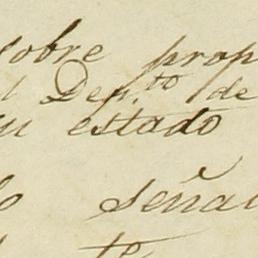 sobre prop
l Dep.to de
su estado
o señal
te